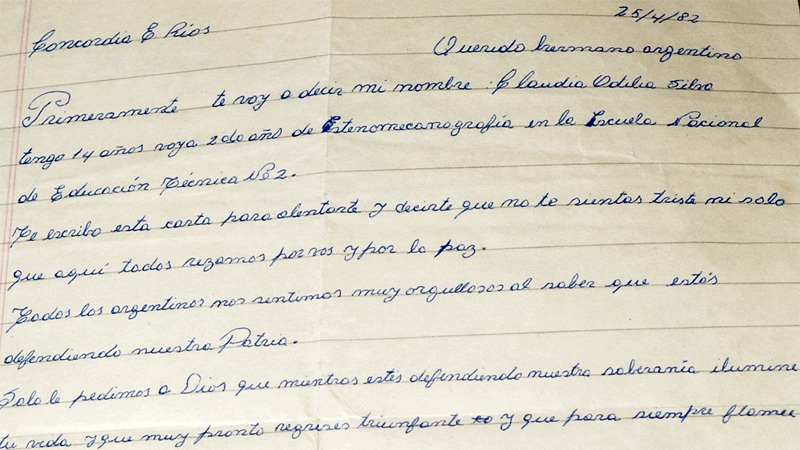 25/4/82
Concordia E Rios
Querido hermano argentino
Primeramente te voy a decir mi nombre: Claudia Odilia Silva
tengo 14 años voy a 2do año de Estenomecanografía en la Escuela Nacional
de Educación Técnica Nº 2.
Te escribo esta carta para alentarte y decirte que no te sientas triste ni solo
que aquí todos rezamos por vos y por la paz.
Todos los argentinos nos sentimos muy orgullosos al saber que estás
defendiendo nuestra Patria.
Solo le pedimos a Dios que mientras estés defendiendo nuestra soberanía ilumine
tu vida y que muy pronto regreses triunfante y que para siempre flamee